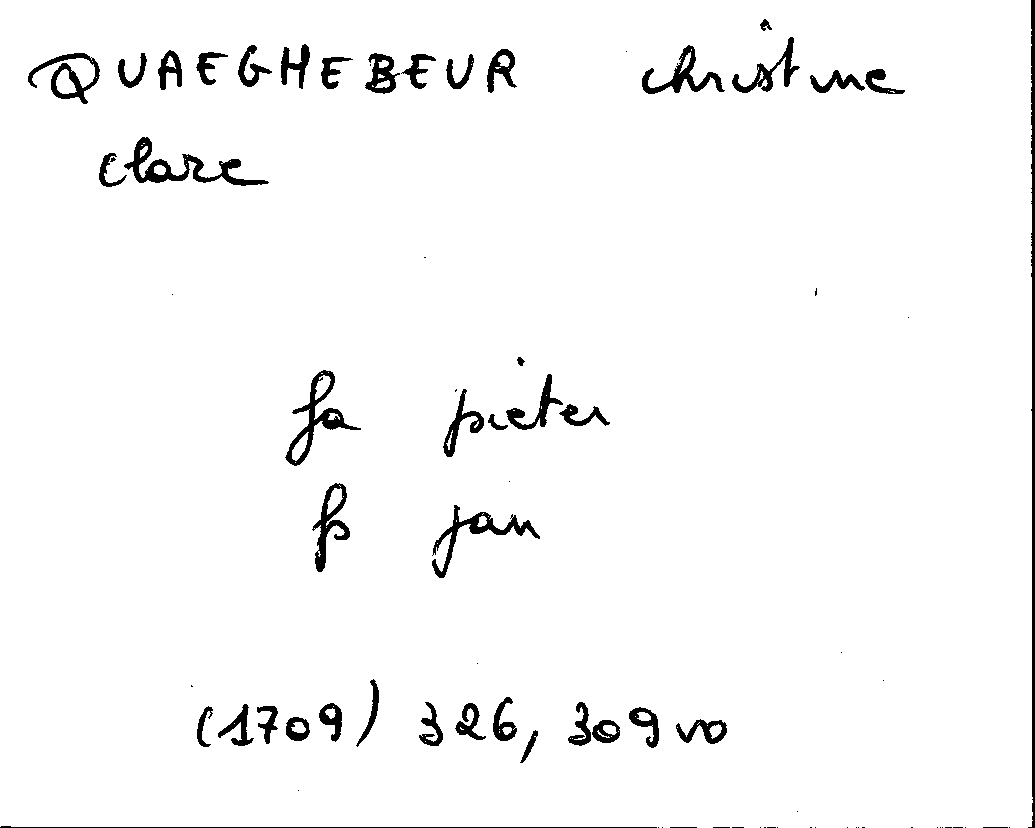 QUAEGHEBEUR christine
clare
fa pieter
fs jan
(1709) 326, 309vo